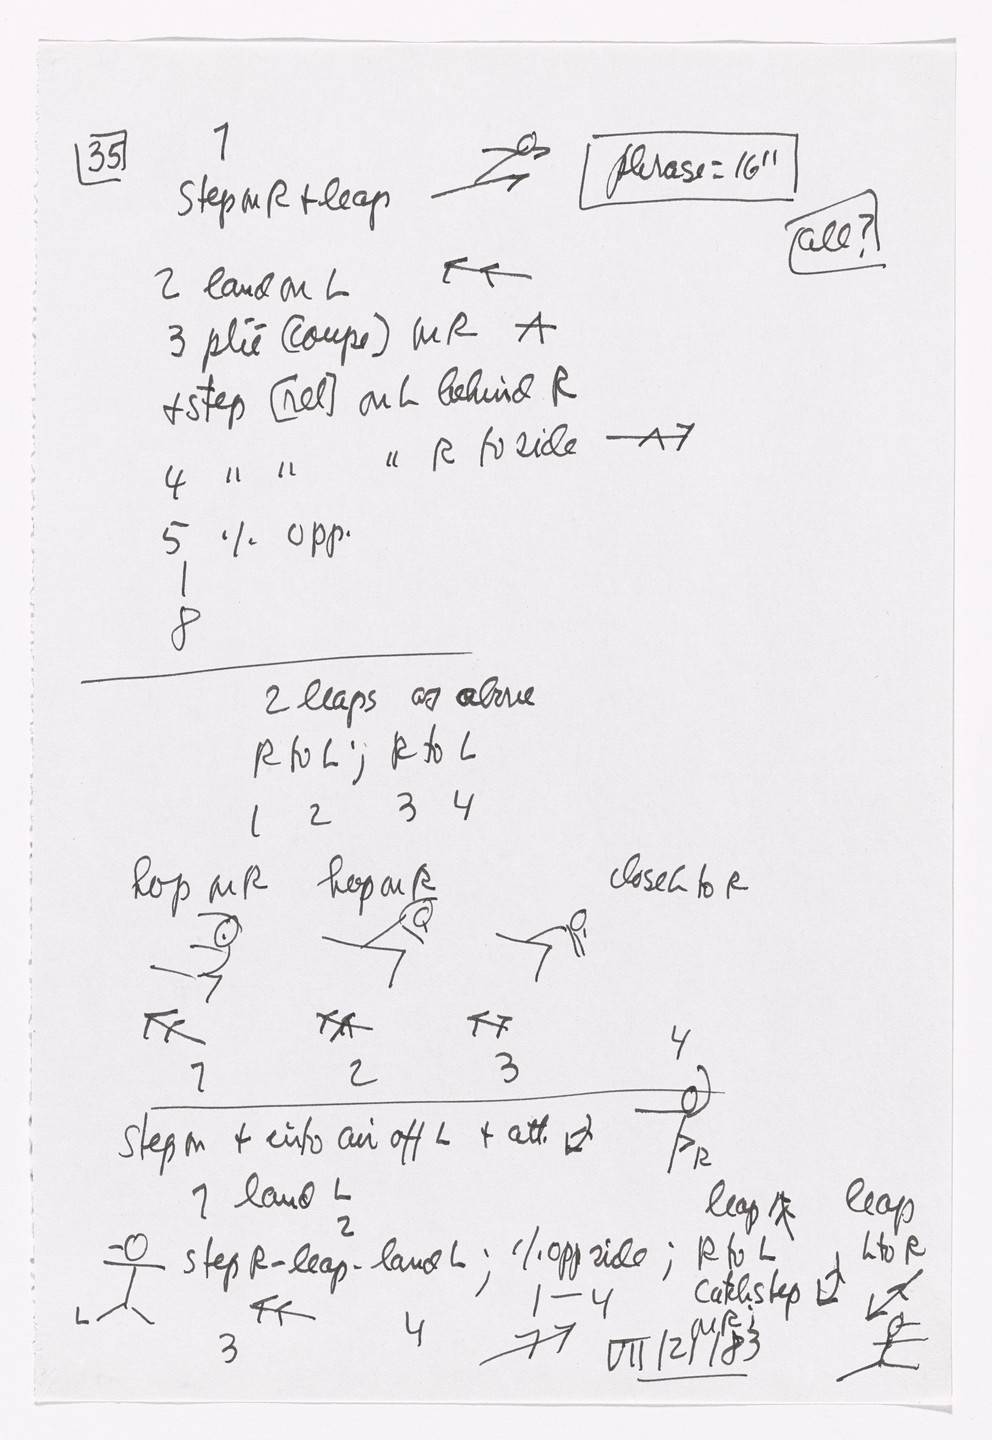 35 1
step on R + leap phrase = 16"
all?
2 land on L
3 plié (coupé) on R
+ step [rel] on L behind R
4 " " " R to side
5 ·/. opp.
|
8
2 leaps as above
R to L ; R to L
1 2 3 4
hop on R hop on R close L to R
4
1 2 3
step on + into air off L + att.
R
1 land L leap leap
2
step R - leap - land L ; ·/. opp side ; R to L L to R
L 1 - 4 catch step
on R ;
3 4 VII/21/83